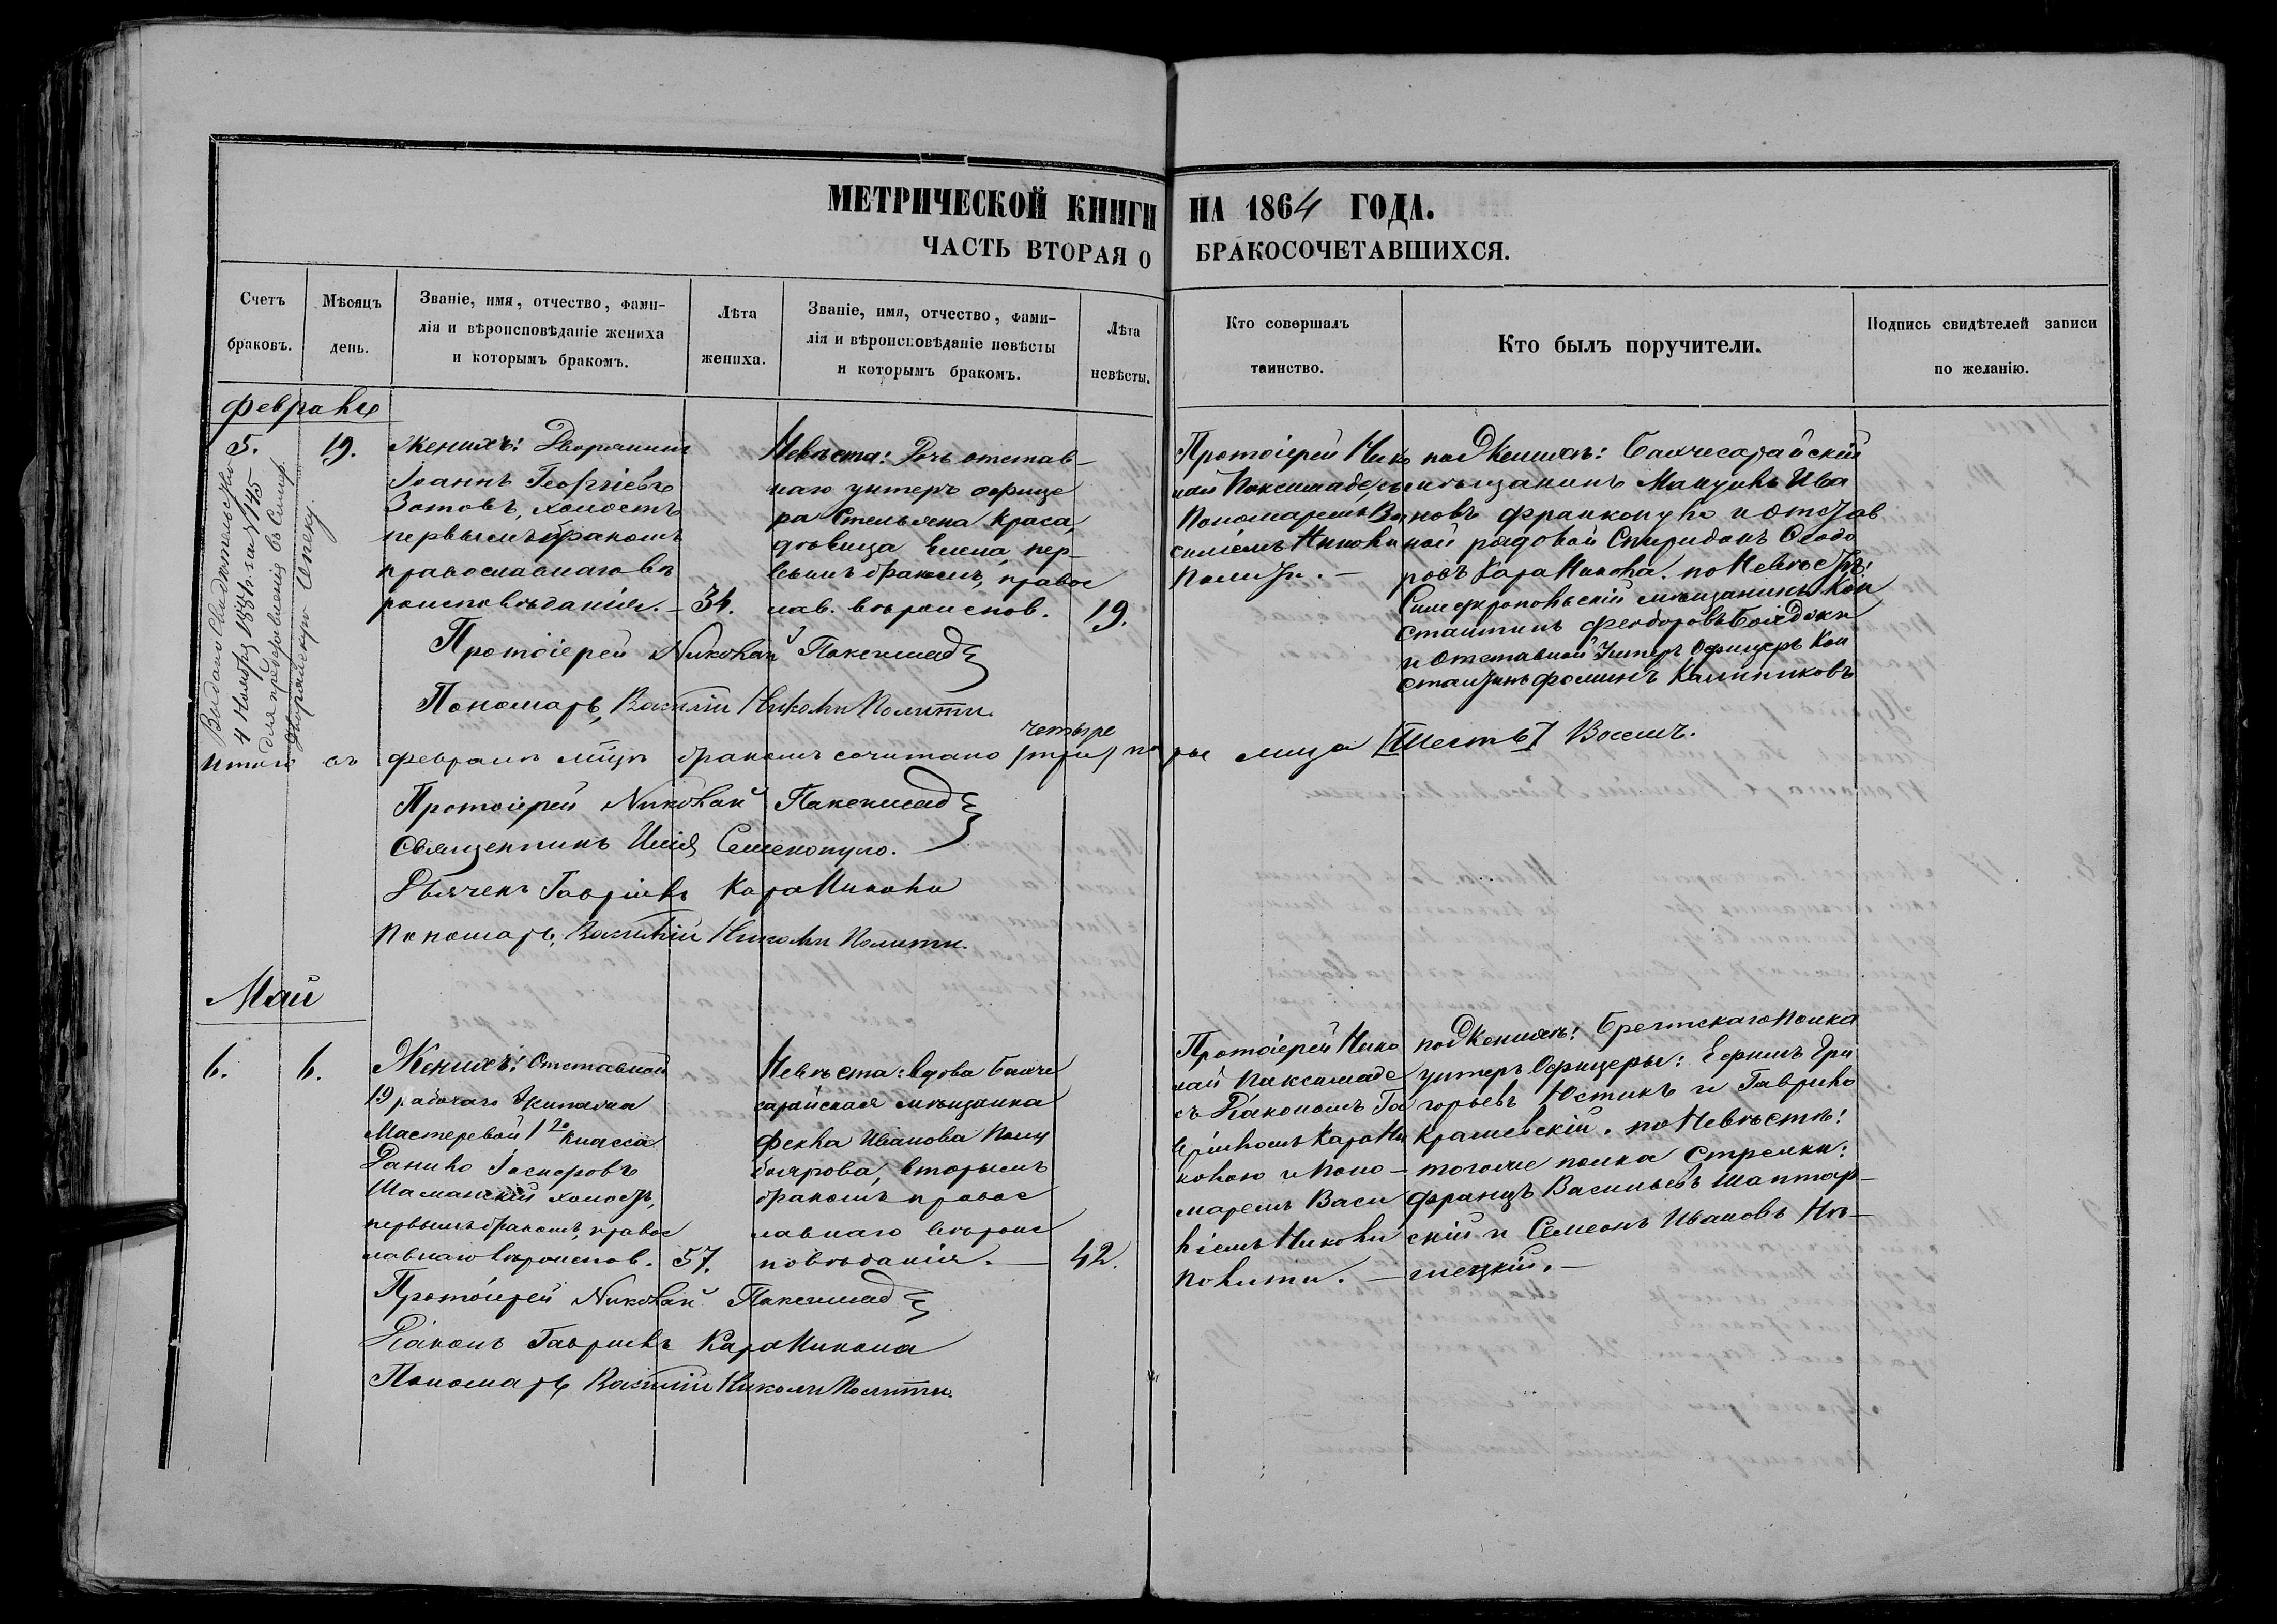 МЕТРИЧЕСКОЙ КНИГИ НА 1864 ГОДА.
ЧАСТЬ ВТОРАЯ О БРАКОСОЧЕТАВШИХСЯ.
Счетъ
браковъ.
Мѣсяцъ
день.
Званіе, имя, отчество, фами-
лія и вѣроисповѣданіе жениха
и которымъ бракомъ.
Лѣта
жениха.
Званіе, имя, отчество, фами-
лія и вѣроисповѣданіе невѣсты
и которымъ бракомъ.
Лѣта
невѣсты.
Кто совершалъ
таинство.
Кто былъ поручители.
Подпись свидѣтелей записи
по желанію.
Февраль
5.
19.
Выдано Свидѣтельство
4 Ноября 1881 г. за № 145
для представленія въ Симф.
Дворянскую Опеку.
Женихъ: Дворянинъ
Іоаннъ Георгіевъ
Зотовъ, холостъ
первымъ бракомъ
православнаго вѣ
роисповѣданія. — 34.
Невѣста: Дочь отстав-
наго унтеръ офице
ра Стельяна Краса,
дѣвица Елена, пер-
вымъ бракомъ, правос
лав. вѣроиспов. 19.
Протоіерей Нико
лай Паксимаде, съ
Пономаремъ Ва
силіемъ Николи
Полити. —
по Женихѣ: Бахчесарайскій
мѣщанинъ Мануилъ Ива
новъ Франкопуло и Отстав
ной рядовой Спиридонъ Ѳеодо
ровъ КараНикола. по Невѣстѣ:
Симферопольскій мѣщанинъ Кон
стантинъ Феодоровъ
и Отставной Унтеръ Офицеръ Кон
стантинъ Фоминъ Калинниковъ
Протоіерей Николай Паксимад
Пономарь, Василій Николи Полити.
Итого въ февралѣ мцѣ бракомъ сочитано [три] четыре пары лица [Шесть] Восемь.
Протоіерей Николай Паксимад
Священникъ Илія Семенопуло.
Дьячекъ Гавріилъ КараНикола
Пономарь, Василій Николи Полити.
Май
6.
6.
Женихъ: Отставной
19 рабочаго Экипажа
Мастеровой 1го класса
Данило Іосиѳовъ
Шаманскій холостъ,
первымъ бракомъ, правос
лавнаго вѣроиспов. 57.
Невѣста: вдова Бахче
сарайская мѣщанка
Фекла Иванова
вторымъ
бракомъ правос
лавнаго вѣроис
повѣданія. — 42.
Протоіерей Нико
лай Паксимаде
съ Діакономъ Га
вріиломъ КараНи
колою и Поно-
маремъ Васи
ліемъ Николи
Полити. —
по Женихѣ: Брестскаго полка
унтеръ Офицеры: Ефимъ Гри
горьевъ Юстикъ и Гаврило
Крашевскій. по Невѣстѣ:
тогоже полка Стрелки:
Францъ Васильевъ Шантар-
скій и Семеонъ Ивановъ Нѣ-
мецкій. —
Протоіерей Николай Паксимад
Діаконъ Гавріилъ КараНикола
Пономарь Василій Николи Полити.